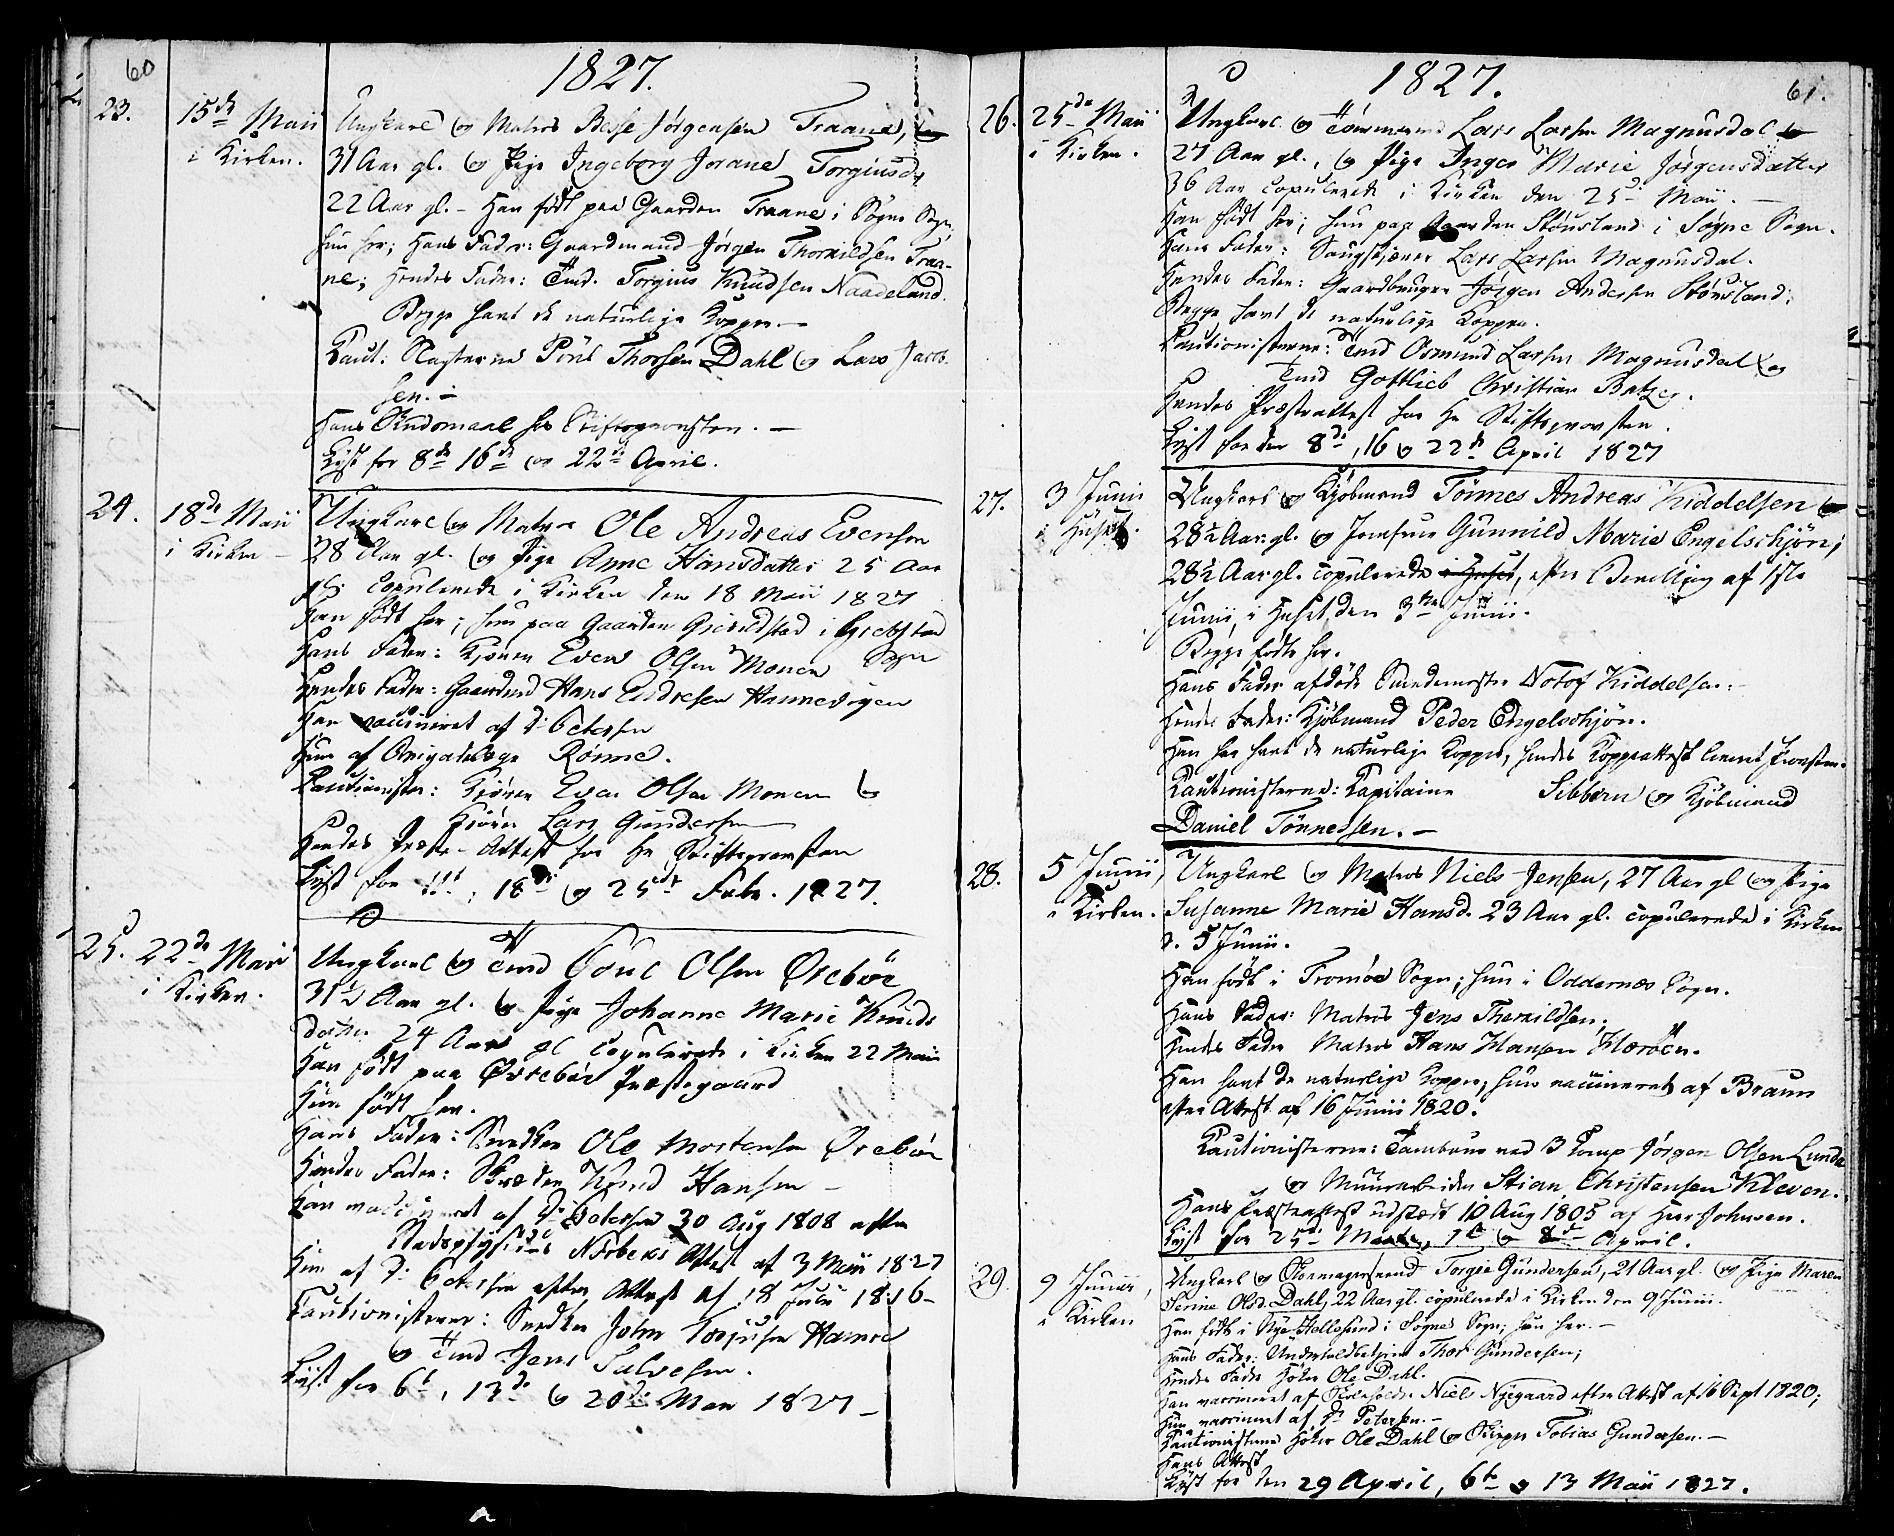 60
1827.
23.
15de Maii
i Kirken.
Ungkarl og Matros Besse Jørgensen Traane,
31 Aar gl. og Pige Ingeborg Jorane Torgiusd.
22 Aar gl. - Han født paa Gaarden Traane i Søgne Sogn,
hun her; Hans Fader: Gaardmand Jørgen Thorkildsen Traa-
ne; Hendes Fader: Tmd. Torgius Knudsen Naadeland.
Begge havt de naturlige Kopper. -
Caut: Slagterne Poul Thorsen Dahl og Lars Jacob-
sen. -
Hans Skudsmaal fra Stiftsprovsten. -
Lyst for 8de 16de og 22de April.
24.
18de Maii
i Kirken -
Ungkarl og Matros Ole Andreas Evensen
28 Aar gl. og Pige Anne Hansdatter 25 Aar
gl. Copulerede i Kirken den 18 Maii 1827
Han født her; hun paa Gaarden i Sogn
Hans Fader: Even Olsen Moneen
Hendes Fader: Gaardmd Hans Andresen Hannevigen
Han vaccineret af Dr. Petersen
Hun af Brigadelæge Rønne.
Cautionister: Even Olsen Moneen og
Lars Gundersen
Hendes Præste-Attest fra Hr Stiftsprovsten
Lyst for 11te, 18de og 25de Febr. 1827.
25.
22de Maii
i Kirken.
Ungkarl og Tmd Poul Olsen Ørebøe
31½ Aar gl. og Pige Johanne Marie Knuds
datter 24 Aar gl copulerede i Kirken 22 Maii
Han født paa Øvrebøe Præstegaard
Hun født her.
Hans Fader: Snedker Ole Mortensen Ørebøe
Hendes Fader: Skræder Knud Hansen -
Han vaccineret af Dr. Petersen 30 Aug 1808 efter
Stadsphysicus Attest af 3 Maii 1827
Hun af Dr. Petersen efter Attest af 18 Julii 1816 -
Cautionisterne: Snedker John Torjusen Hamre
og Tmd Jens Salvesen.
Lyst for 6te, 13de og 20de Maii 1827 -
61.
1827.
26.
25de Maii
i Kirken.
Ungkarl og Tømmermd Lars Larsen Magnusdal
27 Aar gl., og Pige Inger Marie Jørgensdatter
36 Aar copulerede i Kirken den 25de Maii. -
Han født her; hun paa Gaarden Stousland i Søgne Sogn.
Hans Fader: Lars Larsen Magnusdal.
Hendes Fader: Gaardbruger Jørgen Andersen Stousland;
Begge havt de naturlige Kopper.
Cautionisterne: Tmd Osmund Larsen Magnusdal og
Tmd Gottlieb Christian Batzer.
Hendes Præsteattest fra Hr Stiftsprovsten.
Lyst for den 8de, 16 og 22de April 1827
27.
3 Junii
i Huset.
Ungkarl og Kjøbmand Tønnes Andreas Kiddelsen
28½ Aar gl. og Jomfrue Gunnild Marie Engelschjøn;
28½ Aar gl. copulerede i Huset, efter Bevilling af 1ste
Junii, i Huset den 3die Junii.
Begge fødte her.
Hans Fader afdøde Notof Kiddelsen. -
Hendes Fader: Kjøbmand Peder Engelschjøn.
Han har havt de naturlige Kopper, hendes Koppeattest leveret Provsten.
Cautionisterne: Capitaine Sibbern og Kjøbmand
Daniel Tønnessen. -
28.
5 Junii,
i Kirken.
Ungkarl og Matros Niels Jensen, 27 Aar gl og Pige
Susanne Marie Hansd. 23 Aar gl. copulerede i Kirken
d. 5 Junii.
Han født i Tromøe Sogn; hun i Oddernæs Sogn.
Hans Fader: Matros Jens Therkildsen;
Hendes Fader Matros Hans Hansen Kleroen.
Han havt de naturlige Kopper, hun vaccineret af Braun
efter Attest af 16 Junii 1820.
Cautionisterne: Tambour ved 3 Comp Jørgen Olsen Lunde
og Muurarbeider Stian Christensen Kleven.
Hans Præsteattest udstædt 10 Aug 1805 af Herr Johnsen.
Lyst for 25de Martii, 1te og 8de April.
29.
9 Junii,
i Kirken
Ungkarl og Skomagersvend Torger Gundersen, 21 Aar gl. og Pige Maren
Serine Olsd. Dahl, 22 Aar gl. copulerede i Kirken den 9 Junii.
Han født i Nye Hellesund i Søgnes Sogn; hun her. -
Hans Fader: Undertoldbetjent Thor Gundersen;
Hendes Fader Ole Dahl.
Han vaccineret af Niels Nyegaard efter Attest af 16 Sept 1820;
Hun vaccineret af Dr Petersen. -
Cautionisterne Ole Dahl og Tobias Gundersen. -
Hans Attest
Lyst for den 29 April, 6te og 13 Maii 1827.